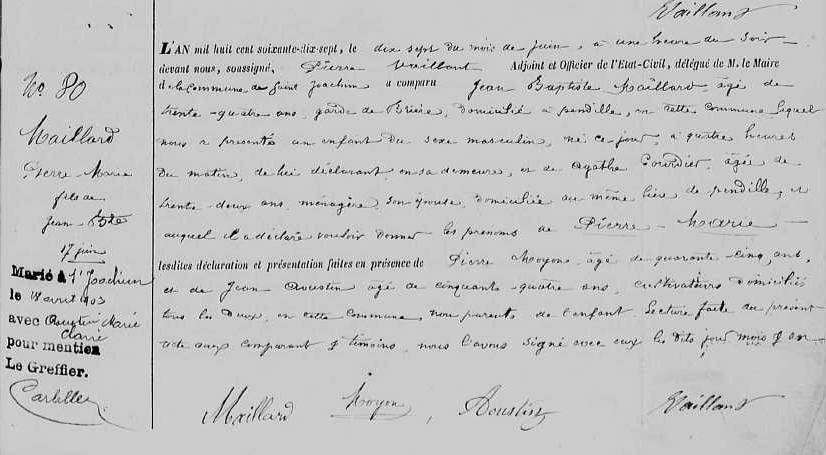 Vaillant
L'AN mil huit cent soixante-dix-sept, le dix sept du mois de juin, à une heure du soir
devant nous, soussigné, Pierre Vaillant Adjoint et Officier de l'Etat-Civil, délégué de M. le Maire
de la commune de Saint Joachim a comparu Jean Baptiste Maillard âgé de
trente-quatre ans, garde de Brière, domicilié à pendille, en cette commune lequel
nous a présenté un enfant du sexe masculin, né ce jour, à quatre heures
du matin, de lui déclarant, en sa demeure, et de Agathe âgée de
trente deux ans, ménagère, son épouse, domiciliée au même lieu de pendille, et
auquel il a déclaré vouloir donner les prénoms de Pierre-Marie
lesdites déclaration et présentation faites en présence de Pierre Moyon, âgé de quarante-cinq ans,
et de Jean Aoustin âgé de cinquante-quatre ans, cultivateurs domiciliés
tous les deux, en cette commune, non parents de l'enfant. Lecture faite du présent
acte aux comparant & témoins, nous l'avons signé avec eux les dits jour mois & an
Maillard Moyon, Aoustin Vaillant
No. 80
Maillard
Pierre-Marie
fils de
Jean-Bte
17 juin
Marié à St Joachim
le avril 903
avec Aoustin Marie
Claire
pour mention
Le Greffier.